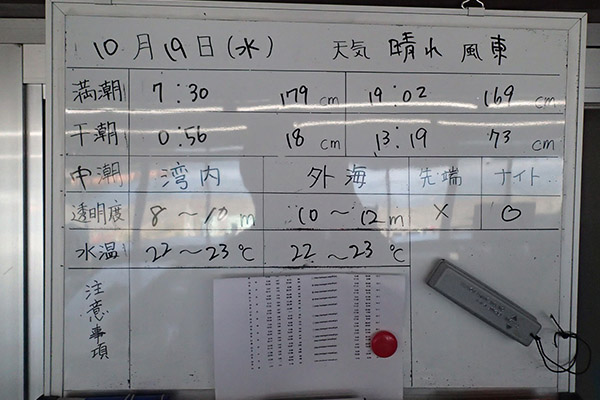 10月19日(水) 天気 晴れ 風 東
満潮 7:30 179cm 19:02 169cm
干潮 0:56 18cm 13:19 73cm
中潮 湾内 外海 先端 ナイト
透明度 8〜10m 10〜12m × ○
水温 22〜23℃ 22〜23℃
注意事項